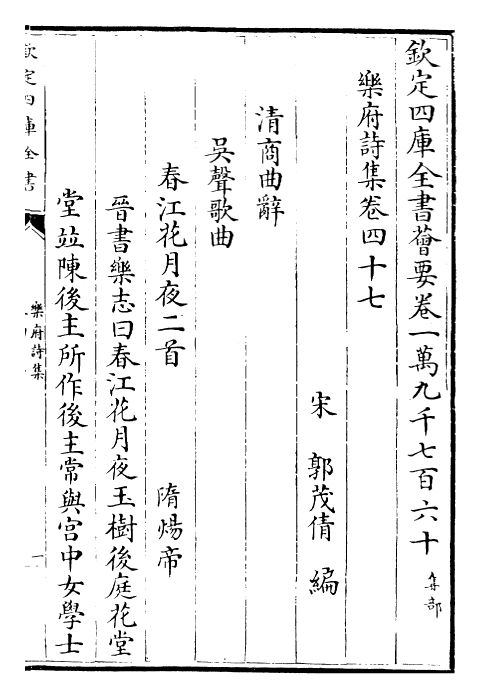 欽定四庫全書薈要卷一萬九千七百六十 集部
樂府詩集卷四十七
宋 郭茂倩 編
清商曲辭
吳聲歌曲
春江花月夜二首 隋煬帝
晉書樂志曰春江花月夜玉樹後庭花堂
堂竝陳後主所作後主常與宮中女學士
欽定四庫全書
樂府詩集
一